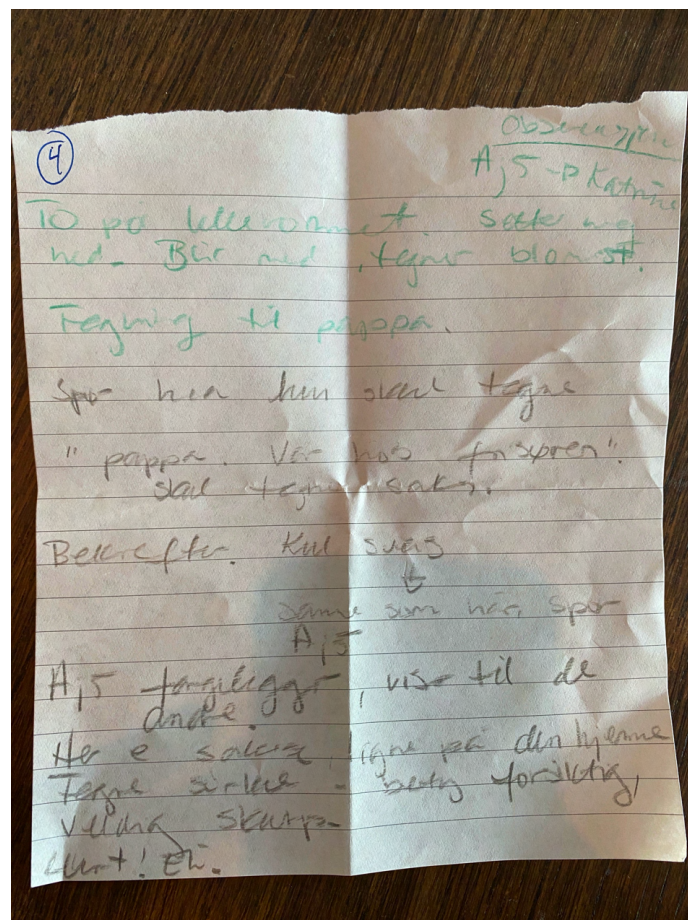 4
Observasjon
A,5 → Katrine
To på lekerommet. Setter meg
ned. Blir med, tegner blomst.
Tegning til pappa.
Spør hva hun skal tegne
"pappa. Var hos frisøren".
skal tegne saks.
Bekrefter. Kul svarg
↓
samme som hår, spør
A,5
A,5 tydeliggjør, viser til de
andre.
Her e saksa, ligne på den hjemme
Tegne sirkel - forsiktig,
veldig skarp